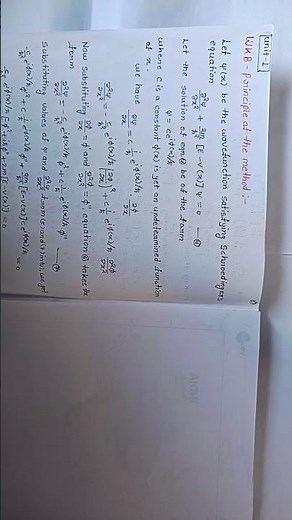 Unit-2
WKB - principle of the method :-
Let ψ(x) be the wavefunction satisfying Schroedinger's
equation
∂²ψ/∂x² + 2m/ħ² [E - V(x)] ψ = 0 — ①
Let the solution of eqn ① be of the form
ψ = c e^{iφ(x)/ħ}
where c is a constant φ(x) is yet an undetermined function
of x.
We have ∂ψ/∂x = c i/ħ e^{iφ(x)/ħ} ∂φ/∂x
∂²ψ/∂x² = - c/ħ² e^{iφ(x)/ħ} (∂φ/∂x)² + c i/ħ e^{iφ(x)/ħ} ∂²φ/∂x²
Now substituting ∂φ/∂x = φ' and ∂²φ/∂x² = φ'' equation takes the
form
∂²ψ/∂x² = - c/ħ² e^{iφ(x)/ħ} φ'² + c i/ħ e^{iφ(x)/ħ} φ''
Substituting values of ψ and ∂²ψ/∂x² from in we get
- c/ħ² e^{iφ(x)/ħ} φ'² + c i/ħ e^{iφ(x)/ħ} φ'' + 2m/ħ² [E - V(x)] c e^{iφ(x)/ħ} = 0